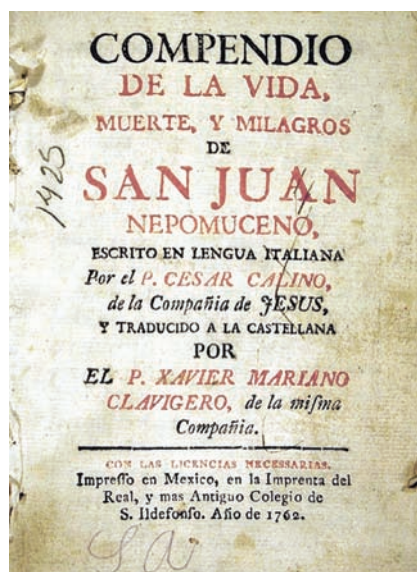 COMPENDIO
DE LA VIDA,
MUERTE, Y MILAGROS
DE
SAN JUAN
NEPOMUCENO,
ESCRITO EN LENGUA ITALIANA
Por el P. CESAR CALINO,
de la Compañia de JESUS,
Y TRADUCIDO A LA CASTELLANA
POR
EL P. XAVIER MARIANO
CLAVIGERO, de la miſma
Compañia.
CON LAS LICENCIAS NECESSARIAS.
Impreſſo en Mexico, en la Imprenta del
Real, y mas Antiguo Colegio de
S. Ildefonſo. Año de 1762.
1425